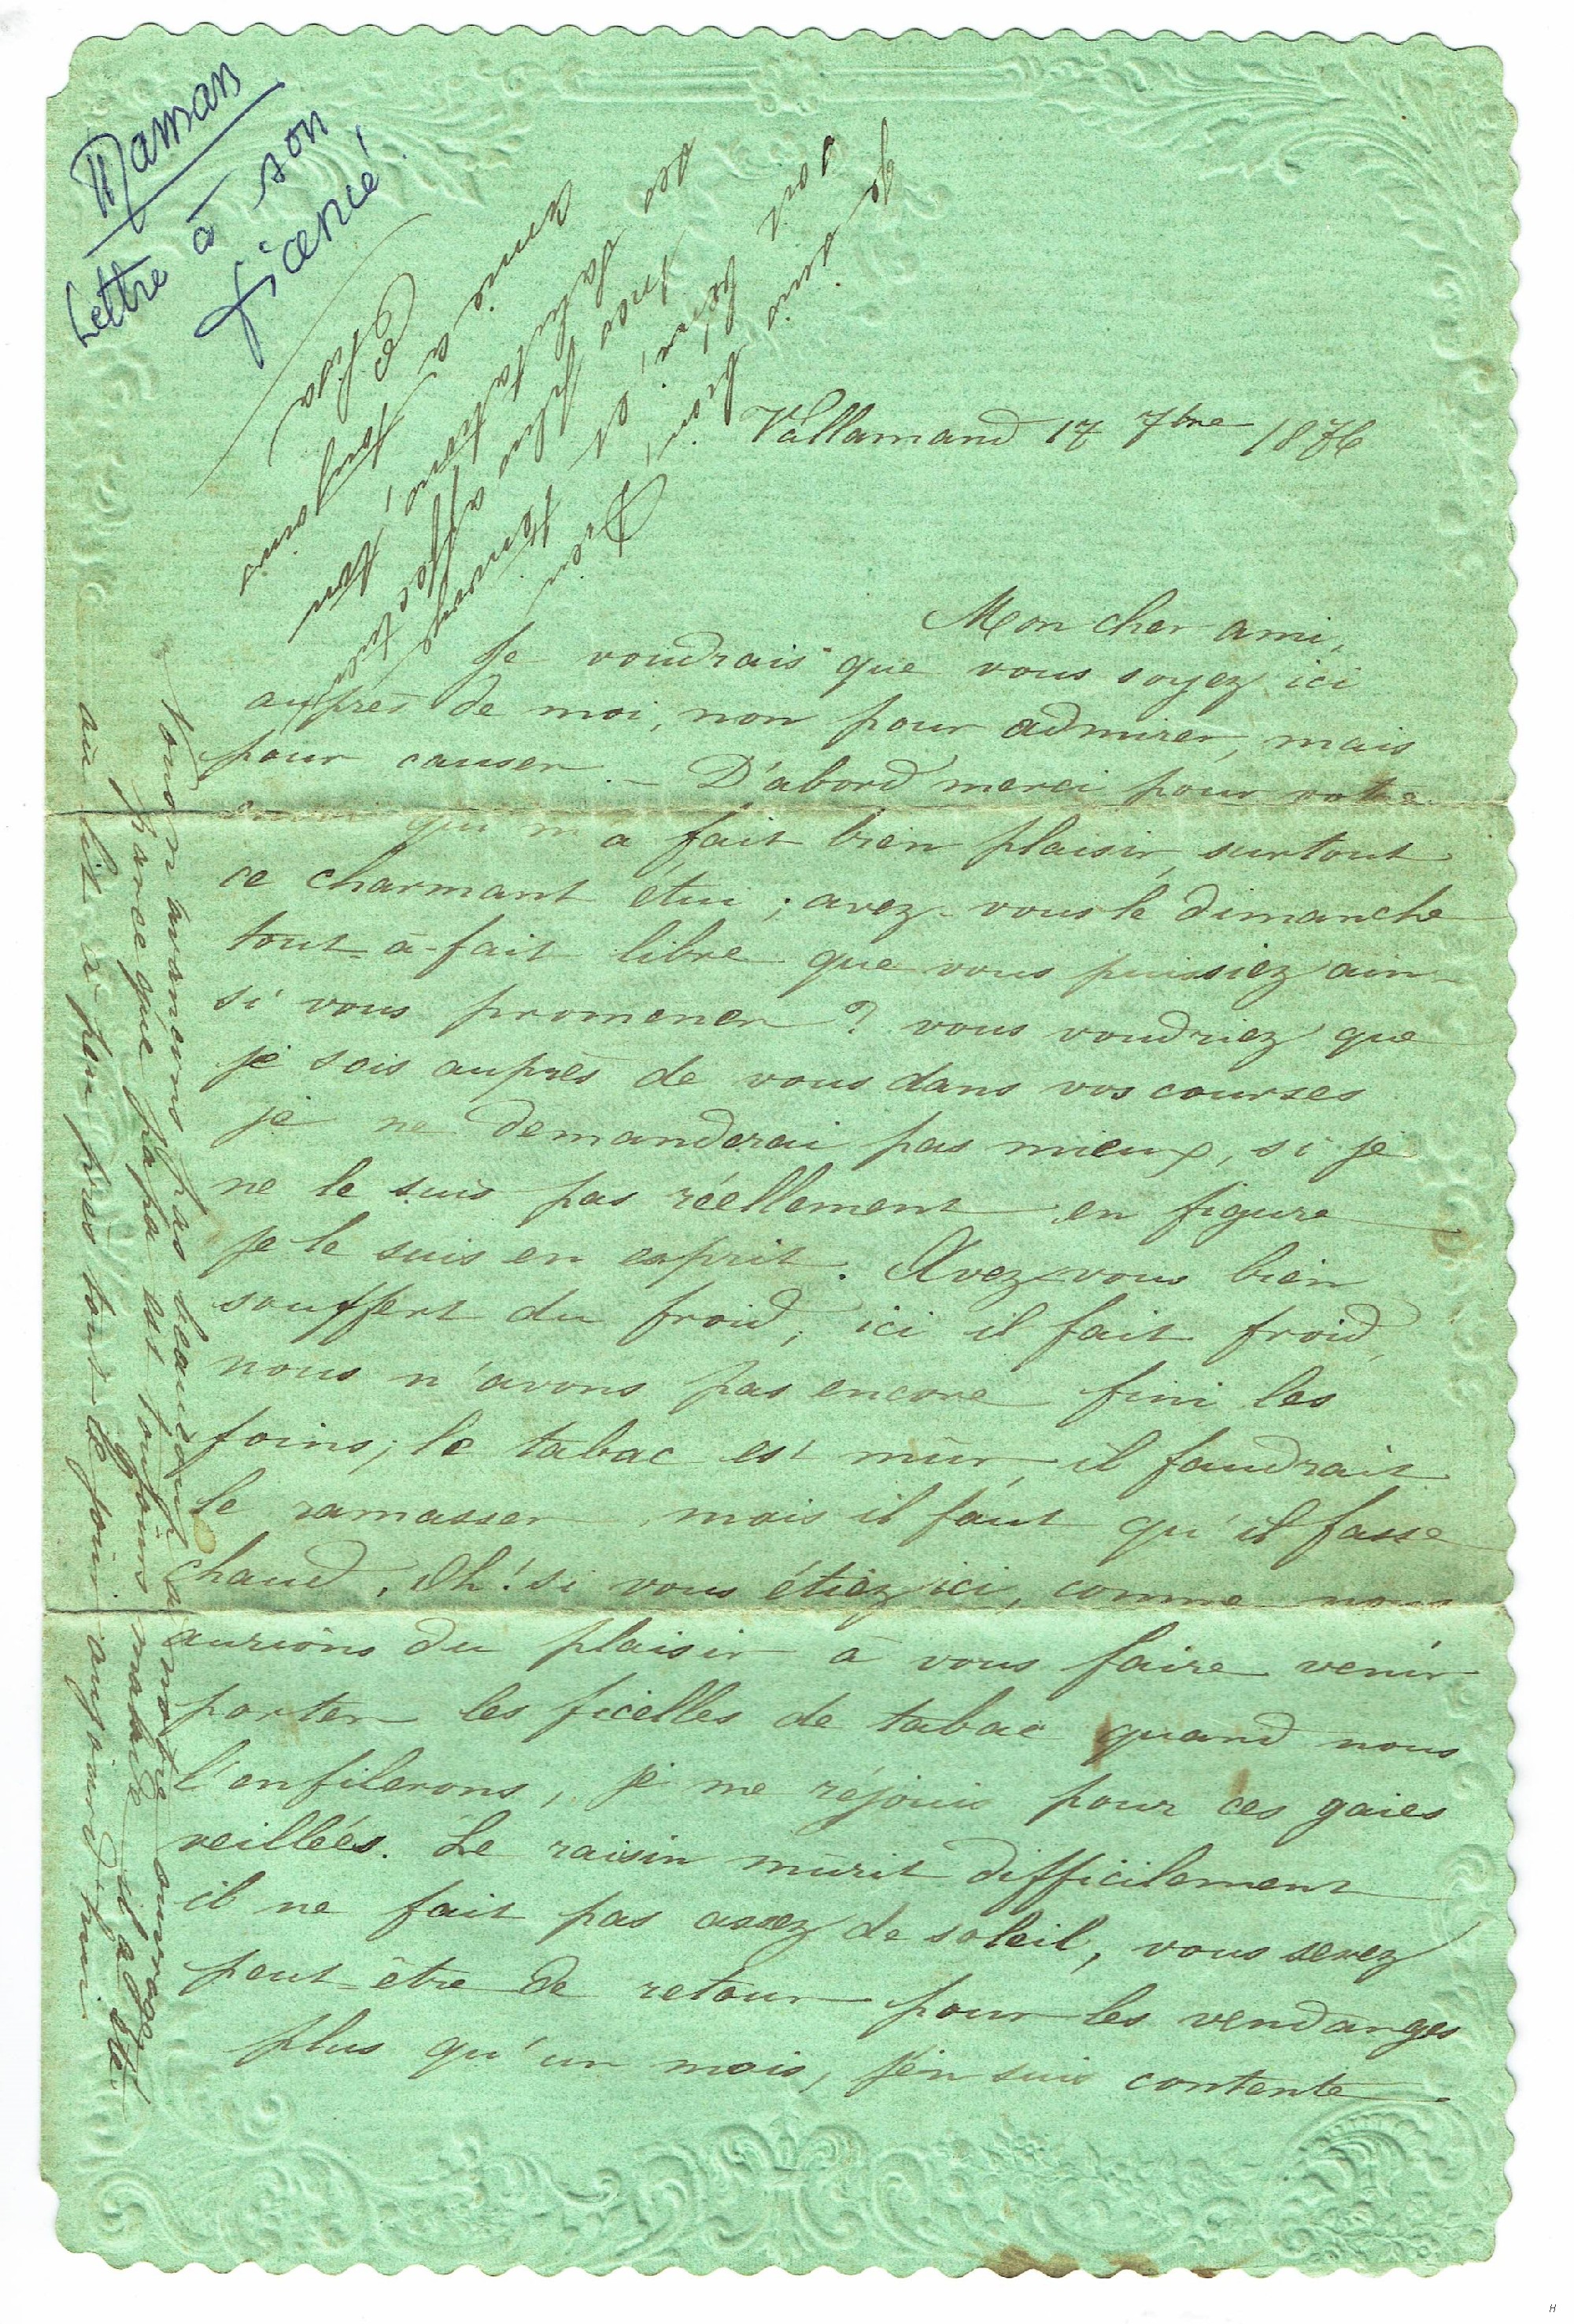 Maman
Lettre à son
fiancé
Vallamand 17 7bre 1876
Mon cher ami,
Je voudrais que vous soyez ici
auprès de moi, non pour admirer, mais
pour causer. – D'abord merci pour votre
qui m'a fait bien plaisir, surtout
ce charmant étui ; avez-vous le dimanche
tout-à-fait libre que vous puissiez ain-
si vous promener ? vous voudriez que
je sois auprès de vous dans vos courses
je ne demanderai pas mieux, si je
ne le suis pas réellement en figure
je le suis en esprit. Avez-vous bien
souffert du froid, ici il fait froid,
nous n'avons pas encore fini les
foins; le tabac est mûr, il faudrait
le ramasser, mais il faut qu'il fasse
chaud. Oh! si vous étiez ici, comme nous
aurions du plaisir à vous faire venir
porter les ficelles de tabac quand nous
l'enfilerons, je me réjouis pour ces gaies
veillées. Le raisin mûrit difficilement
il ne fait pas assez de soleil, vous serez
peut-être de retour pour les vendanges
plus qu'un mois, j'en suis contente
Nous n'avançons pas beaucoup à notre ouvrage
parce que papa est toujours malade il a été
au lit à peu près tout le jour aujourd'hui.
Dieu
de plus
et
nos plus
affectueuses
salutations,
amie à toujours
Elisa